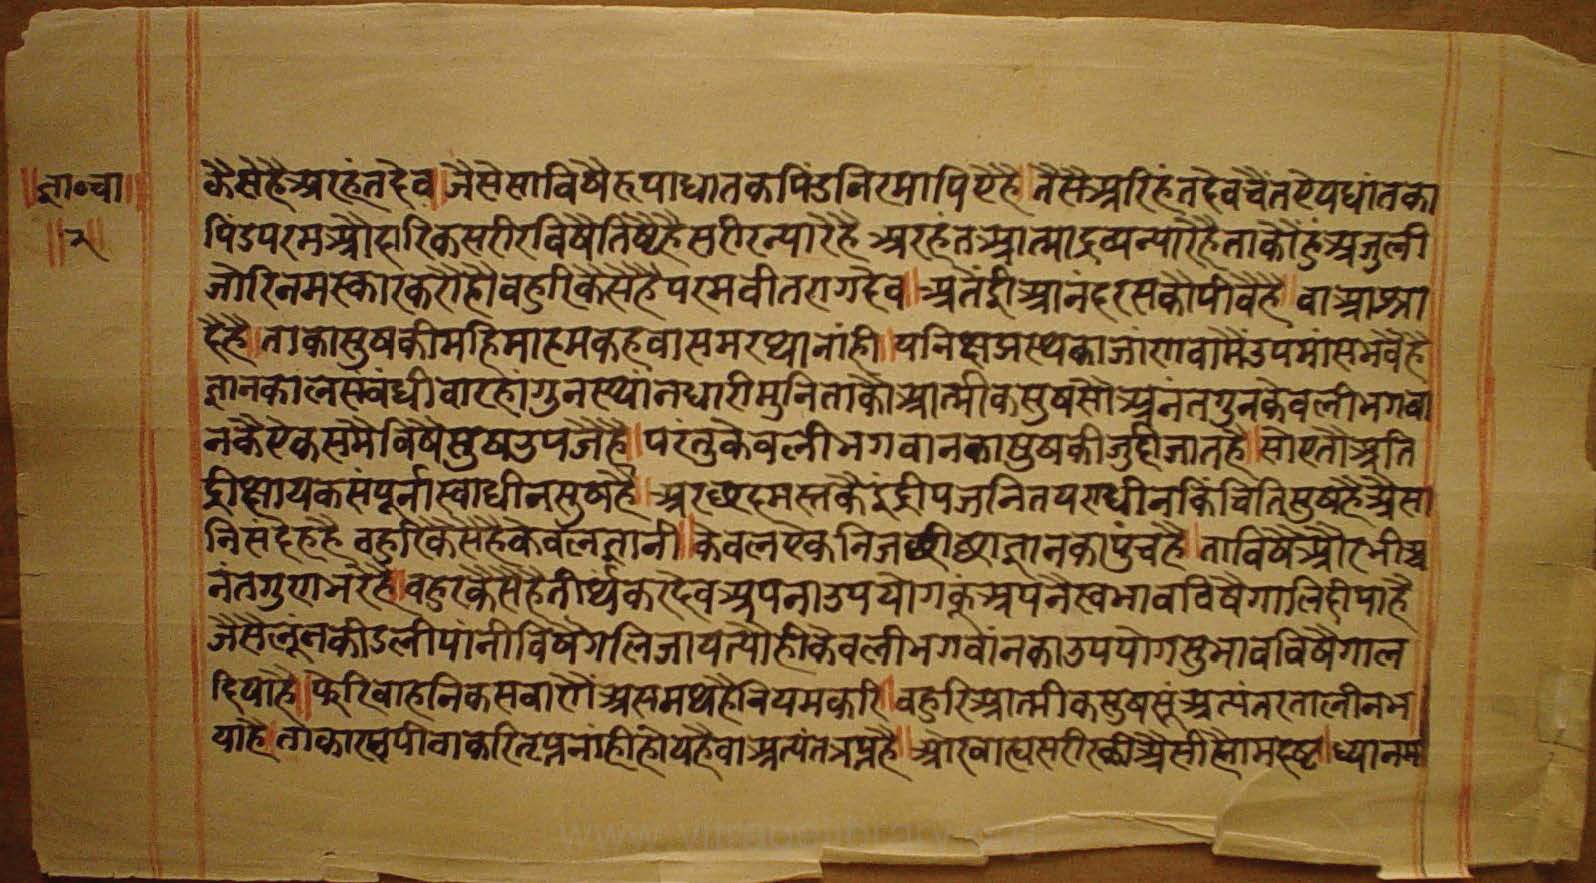 ज्ञा॰चा
२
कैसेहैअरहंतदेव॥जैसेसाविषैरूपाधातकपिंडनिरमापिएहै॥तैसैअरिहंतदेवचैतन्यधांतका
पिंडपरमऔदारिकसरीरविषैतिष्टैहैसरीरन्यारैहै अरहंतआत्माद्रव्यन्यारैहैताकौहुंअजुली
जोरिनमस्कारकरौहौवहुरिकैसैहैपरमवीतरागदेव॥अतेंद्रीआनंदरसकौपीवैहै॥वाआश्वा
दैहै॥ताकासुषकीमहिमाहमकहवासमरथानांही॥पनिछद्मस्थकाजांणवामैंउपमांसंभवैहै
ज्ञानकालसंवंधीवारहांगुनस्थांनधारीमुनिताकौआत्मीकसुषसौअनंतगुनकेवलीभगवा
नकैएकसमैविषैसुषउपजैहै॥परंतुकेवलीभगवानकासुषकीजुदीजातहै॥सोएतौअति
द्रीक्षायकसंपूर्नास्वाधीनसुषहै॥अरछद्मस्तकैइंद्रीपजनितपराधीनकिंचितिसुषहैअैसा
निसंदेहहै वहुरिकैसैहैकेवलज्ञानी॥केवलएकनिजज्ञानकापुंजहै॥ताविषैऔरभीअ
नंतगुणभरैहै॥वहुरकैसैहैतीर्थंकरदेवअपनाउपयोगकूंअपनैस्वभावविषैगालिदीयाहै
जैसैलूंनकीडलीपांनीविषैगलिजायत्यौहीकेवलीभगवांनकाउपयोगसुभावविषैगाल
दियाहै॥फेरिवाहनिकसवाणैंअसमर्थहैनियमकरि॥वहुरिआत्मीकसुषसूंअत्यंतरतालीनभ
याहै॥ताकारसपीवाकरितृप्तनांहीहोयहैवाअत्यंततृप्तहै॥औरवाह्यसरीरकीअैसीसौमदृष्ट॥ध्यानम